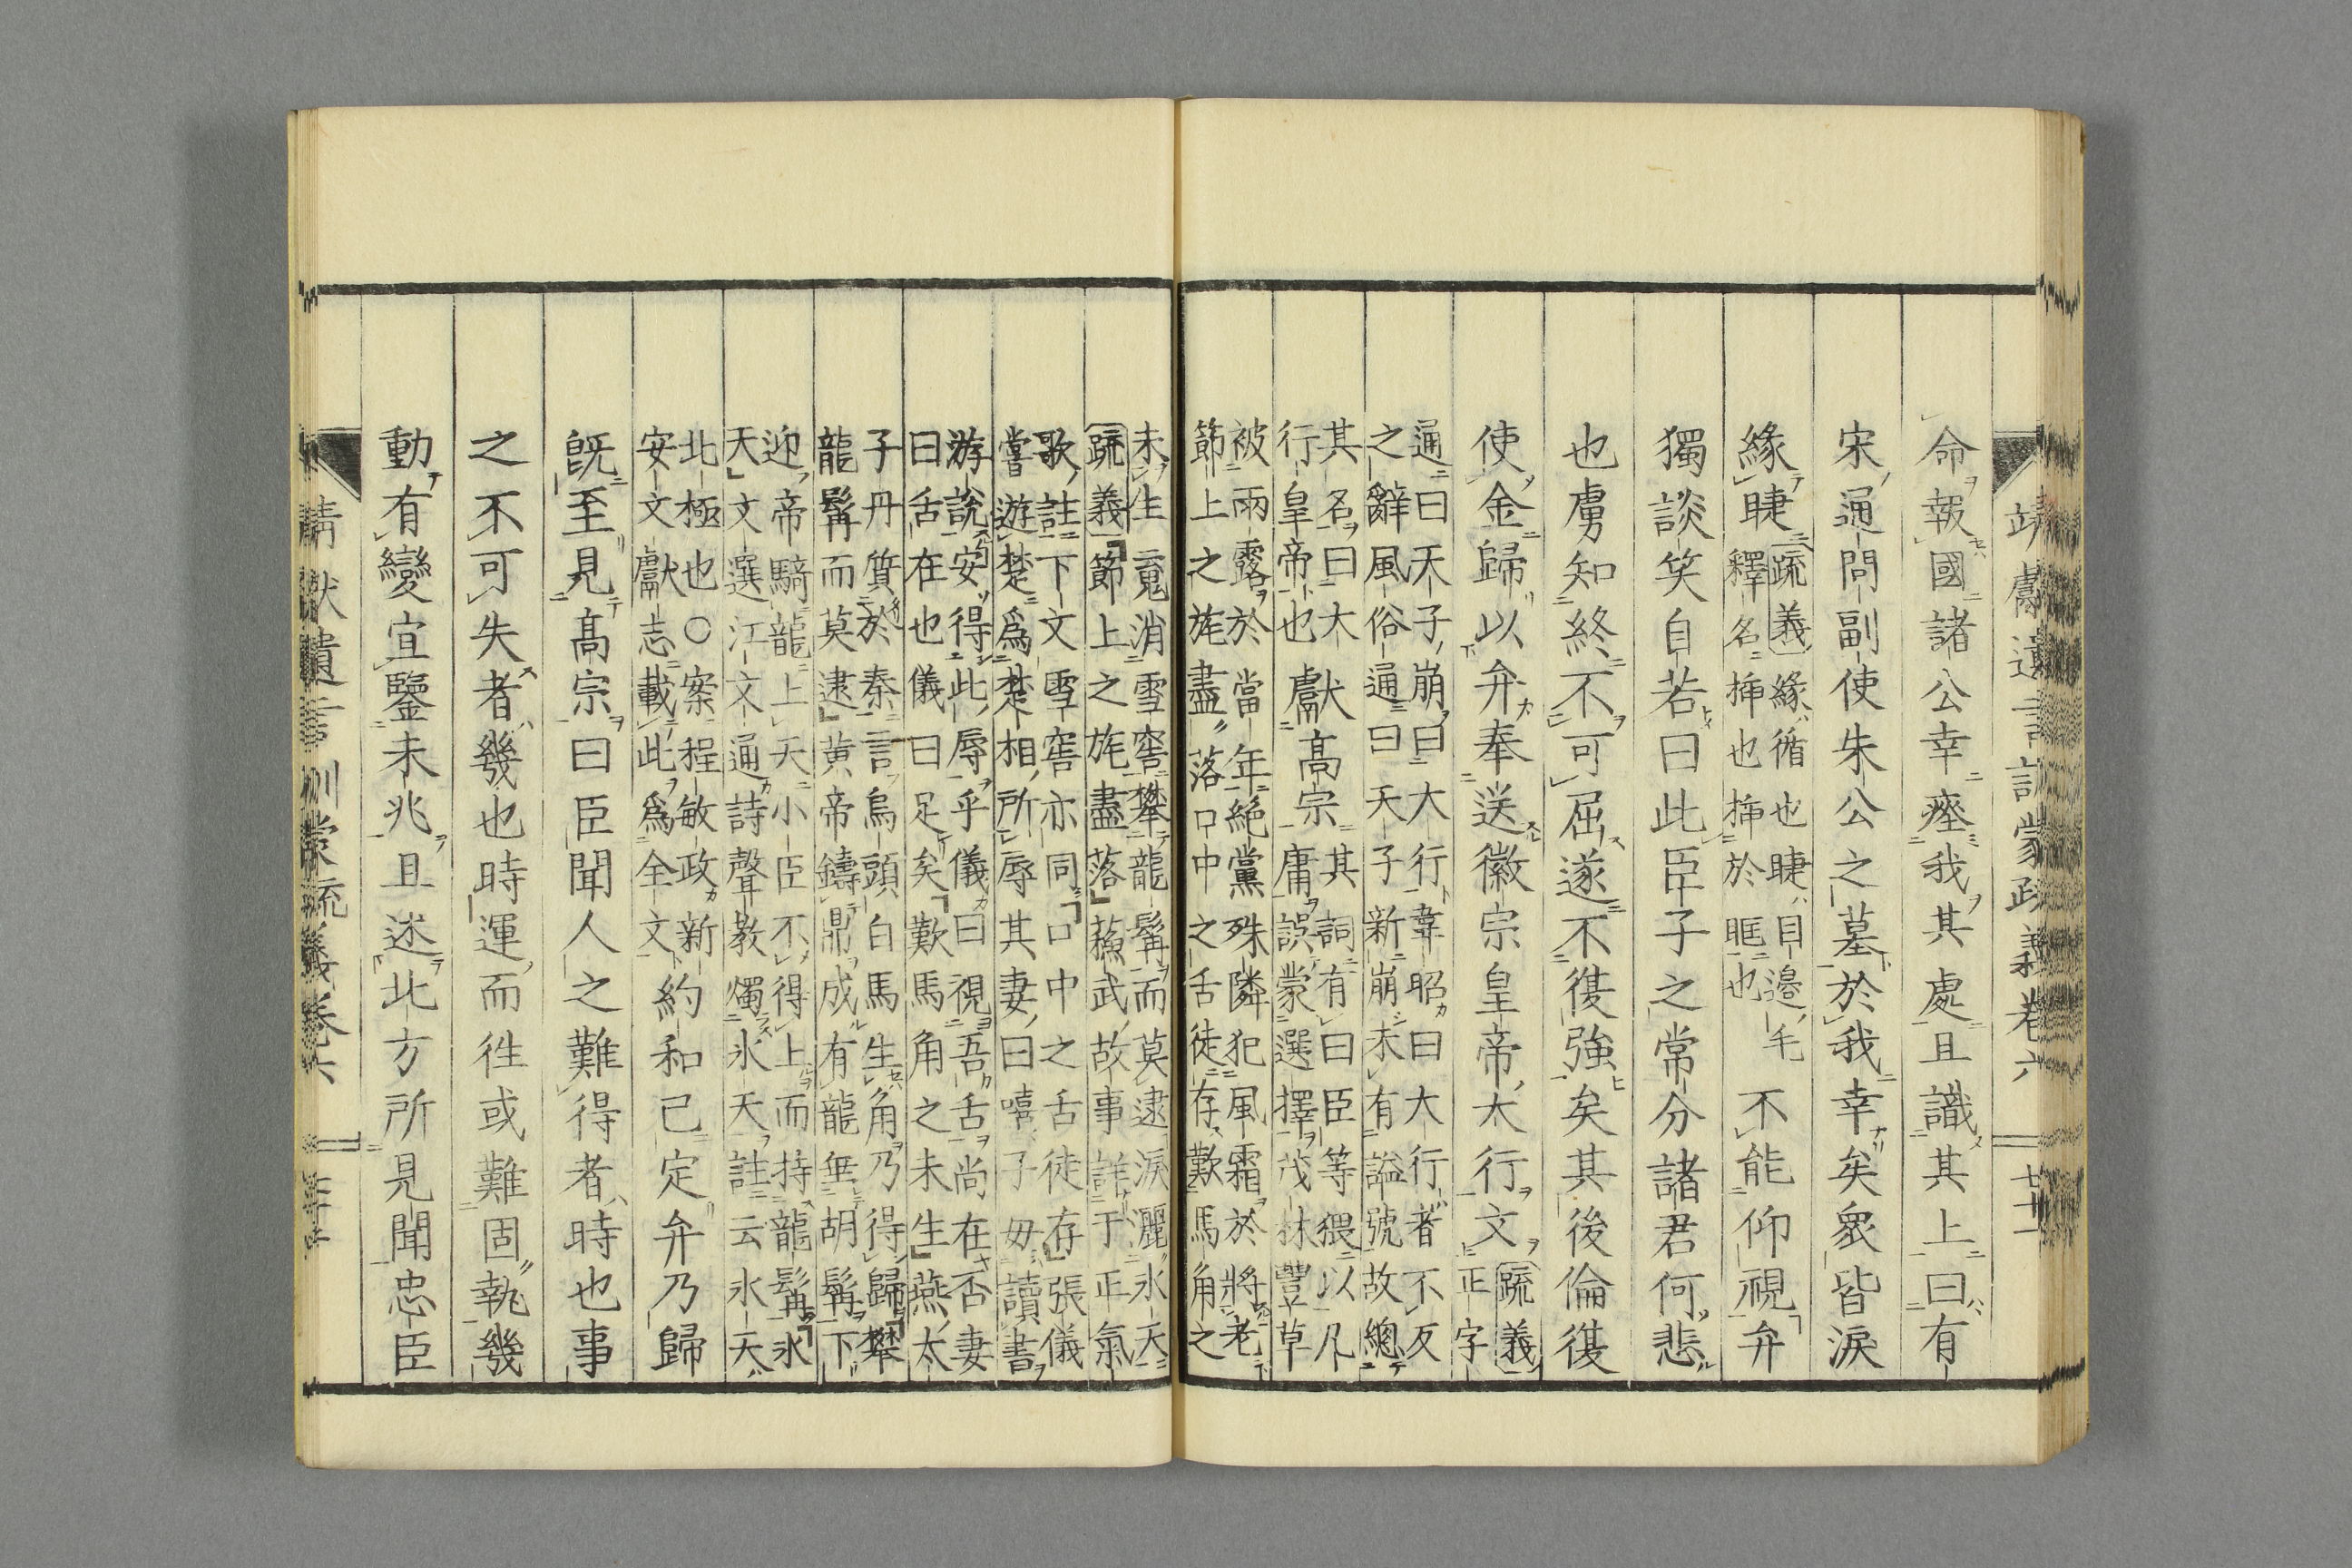 靖獻遺言訓蒙疏義卷六
命報國諸公幸瘞我其處且識其上曰有
宋通問副使朱公之墓於我幸矣衆皆淚
緣睫
疏義緣循也睫目邊毛
釋名揷也揷於眶也
不能仰視弁
獨談笑自若曰此臣子之常分諸君何悲
也虜知終不可屈遂不復強矣其後倫復
使金歸以弁奉送徽宗皇帝大行文
疏義
正字
通曰天子崩曰大行韋昭曰大行者不反
之辭風俗通曰天子新崩未有諡號故總
其名曰大
行皇帝也
獻高宗
其詞有曰臣等猥以凡
庸誤蒙選擇茂林豐草
被雨露於當年絕黨殊隣犯風霜於將老
節上之旄盡落口中之舌徒存歎馬角之
未生䰟消雪窖攀龍髯而莫逮淚灑氷天
疏義節上之旄盡落蘓武故事詳于正氣
歌註下文雪窖亦同口中之舌徒存張儀
嘗遊楚爲楚相所辱其妻曰嘻子毋讀書
游說安得此辱乎儀曰視吾舌尚在否妻
曰舌在也儀曰足矣歎馬角之未生燕太
子丹質於秦言烏頭白馬生角乃得歸攀
龍髯而莫逮黃帝鑄鼎成有龍垂胡髯下
迎帝騎龍上天小臣不得上而持龍髯氷
天文選江文通詩聲敎燭氷天註云氷天
北極也○案程敏政新
安文獻志載此爲全文
約和已定弁乃歸
旣至見高宗曰臣聞人之難得者時也事
之不可失者幾也時運而徃或難固執幾
動有變宜鑒未兆且述北方所見聞忠臣